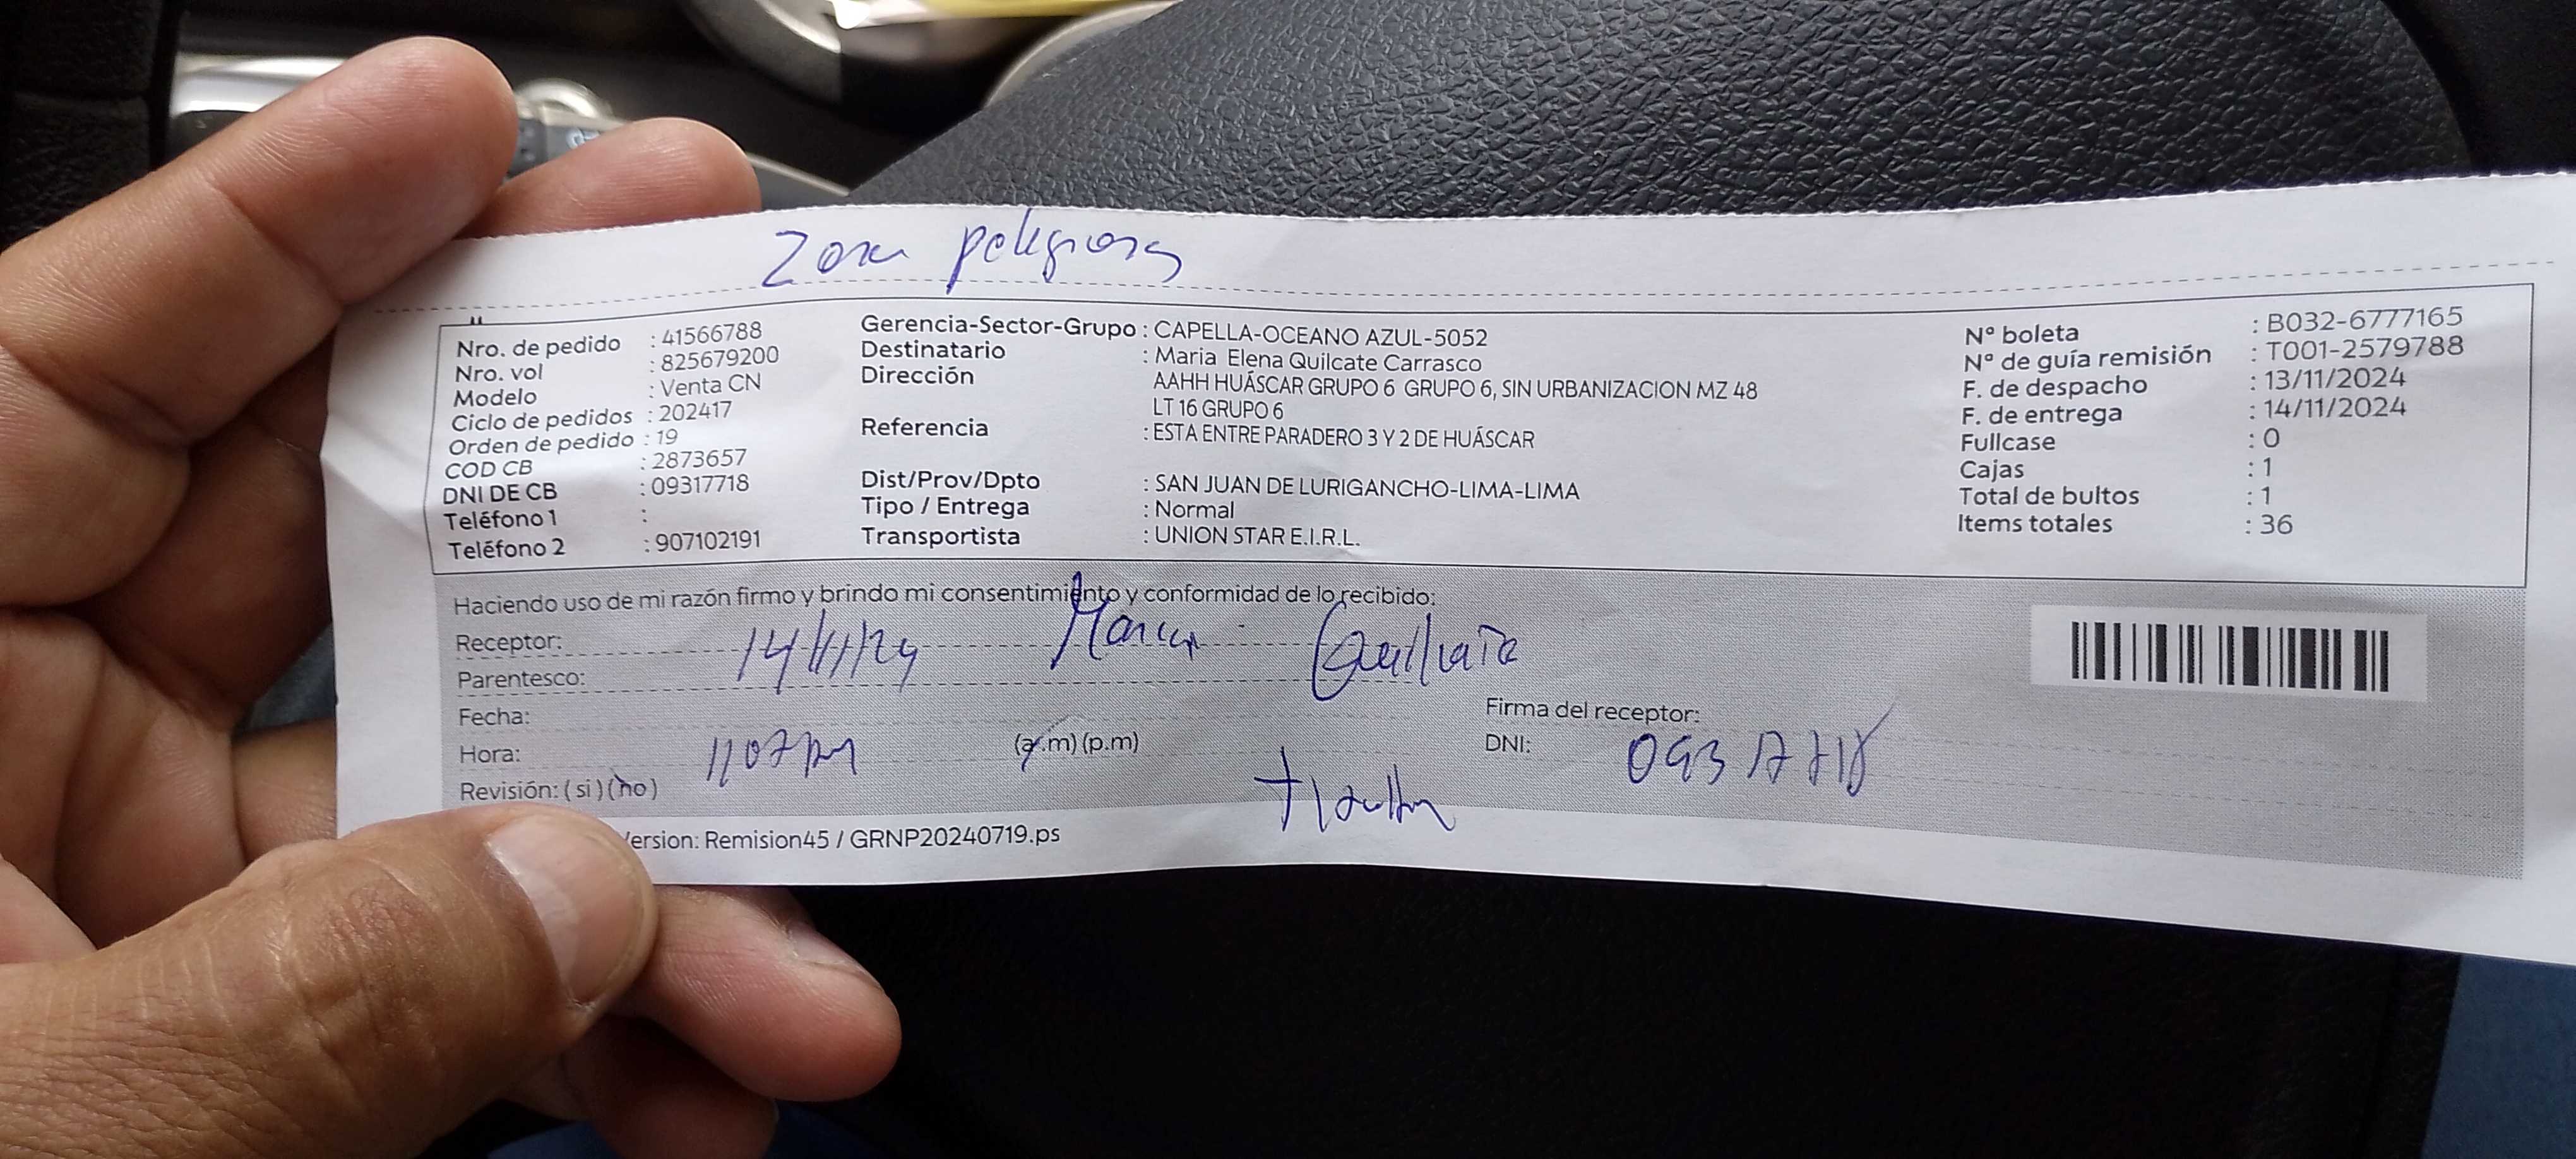 Zona peligrosa
Nro. de pedido : 41566788
Nro. vol : 825679200
Modelo : Venta CN
Ciclo de pedidos : 202417
Orden de pedido : 19
COD CB : 2873657
DNI DE CB : 09317718
Teléfono 1 :
Teléfono 2 : 907102191
Gerencia-Sector-Grupo : CAPELLA-OCEANO AZUL-5052
Destinatario : Maria Elena Quilcate Carrasco
Dirección AAHH HUÁSCAR GRUPO 6 GRUPO 6, SIN URBANIZACION MZ 48
LT 16 GRUPO 6
Referencia : ESTA ENTRE PARADERO 3 Y 2 DE HUÁSCAR
Dist/Prov/Dpto : SAN JUAN DE LURIGANCHO-LIMA-LIMA
Tipo / Entrega : Normal
Transportista : UNION STAR E.I.R.L.
Nº boleta : B032-6777165
Nº de guía remisión : T001-2579788
F. de despacho : 13/11/2024
F. de entrega : 14/11/2024
Fullcase : 0
Cajas : 1
Total de bultos : 1
Items totales : 36
Haciendo uso de mi razón firmo y brindo mi consentimiento y conformidad de lo recibido:
Receptor:
14/11/24
Parentesco:
Fecha:
Firma del receptor:
Hora: (a.m) (p.m)
DNI: 09317718
Revisión: ( si ) (no)
ersion: Remision45 / GRNP20240719.ps